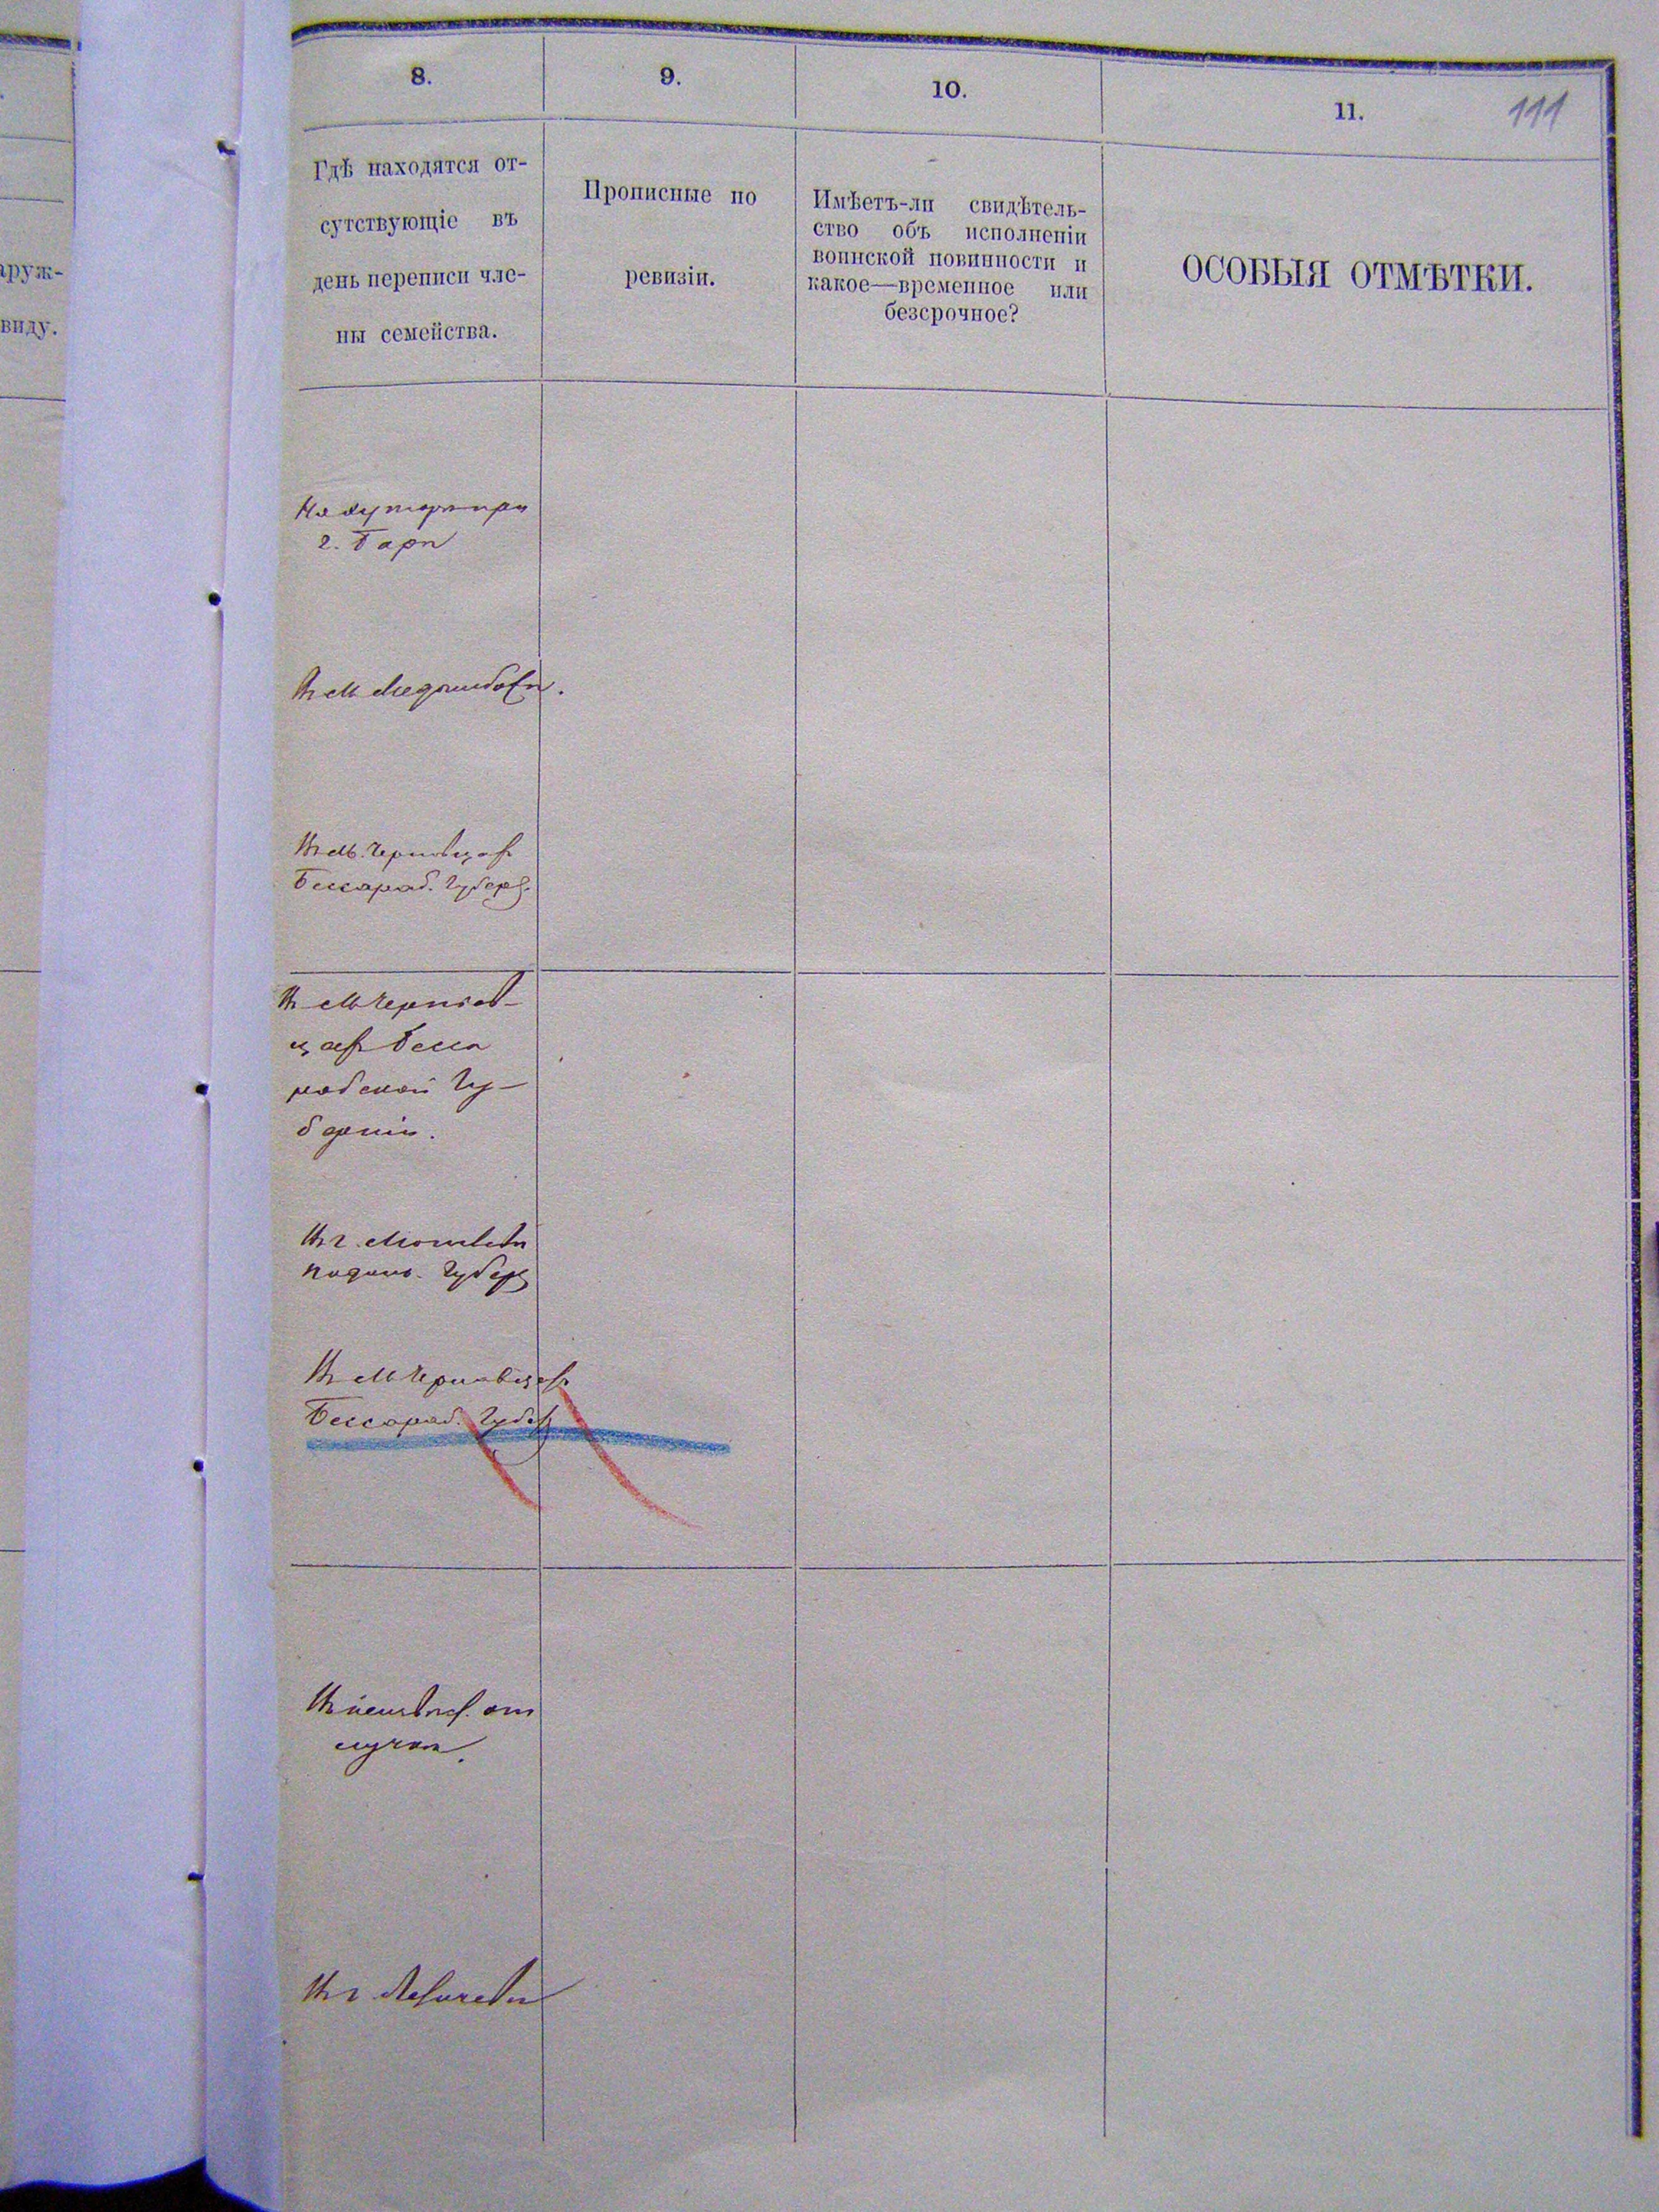 8.
9.
10.
11.
111
Гдѣ находятся от-
сутствующіе въ
день переписи чле-
ны семейства.
Прописные по
ревизіи.
Имѣетъ-ли свидѣтель-
ство объ исполненіи
воинской повинности и
какое—временное или
безсрочное?
ОСОБЫЯ ОТМѢТКИ.
аруж-
виду.
На хуторѣ при
г. Барѣ
Въ м.
Въ м. Черновцахъ
Бессараб. Губер.
Въ м Чернов-
цахъ Бесса
рабской Гу-
берніи.
Въ г. Могилевѣ
Подол. Губер
Въ м Черновцахъ
Бессараб. Губер
Въ неизвѣс. от
лучкѣ.
Въ г.